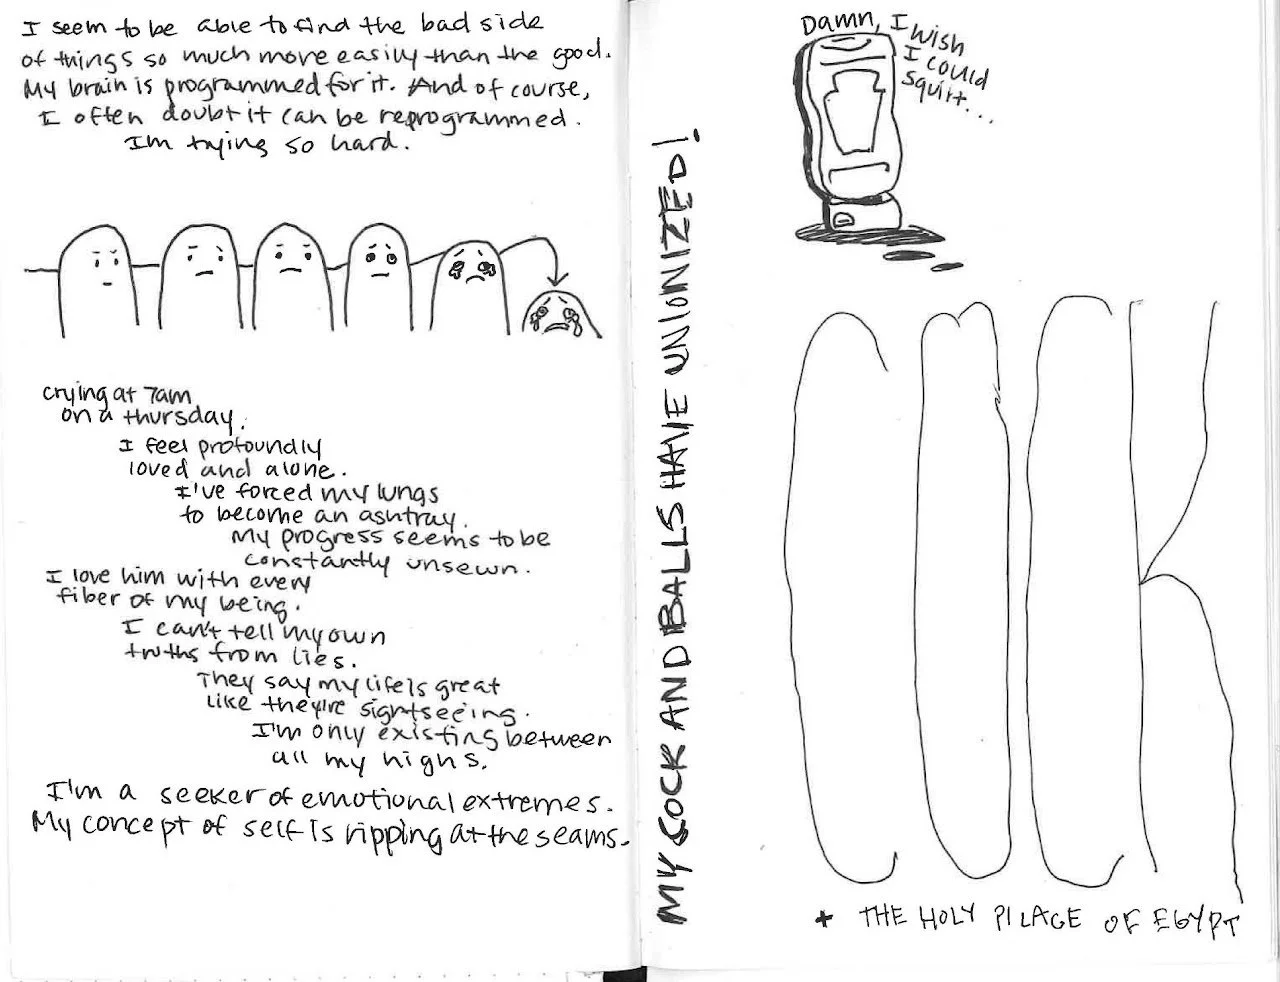 I seem to be able to find the bad side
of things so much more easily than the good.
My brain is programmed for it. And of course,
I often doubt it can be reprogrammed.
Im trying so hard.
crying at 7am
on a thursday.
I feel profoundly
loved and alone.
I've forced my lungs
to become an ashtray.
My progress seems to be
constantly unsewn.
I love him with every
fiber of my being.
I can't tell my own
truths from lies.
They say my life is great
like they're sightseeing.
I'm only existing between
all my highs.
I'm a seeker of emotional extremes.
My concept of self is ripping at the seams.
MY COCK AND BALLS HAVE UNIONIZED!
Damn, I
wish
I could
squirt...
COCK
+ THE HOLY PILAGE OF EGYPT